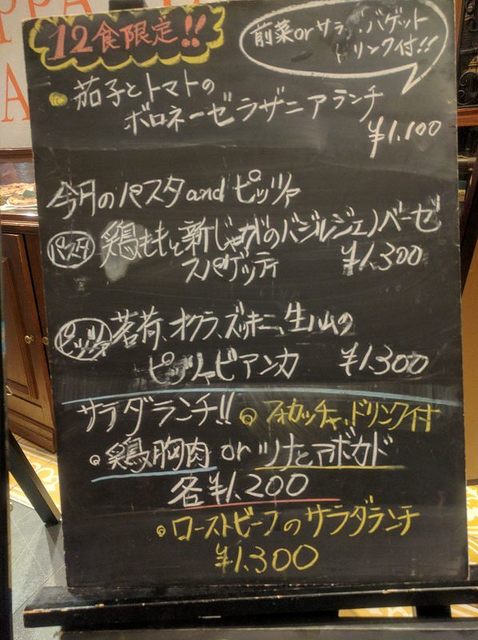 12食限定!!
前菜orサラダ、バゲット
ドリンク付!!
茄子とトマトの
ボロネーゼラザニアランチ
¥1,100
今月のパスタandピッツァ
パスタ 鶏ももと新じゃがのバジルジェノベーゼ
スパゲッティ ¥1,300
ピッツァ 茗荷、オクラ、ズッキーニ、生ハムの
ピッツァビアンカ ¥1,300
サラダランチ!! フォカッチャ、ドリンク付
鶏胸肉 or ツナとアボカド
各¥1,200
ローストビーフのサラダランチ
¥1,300